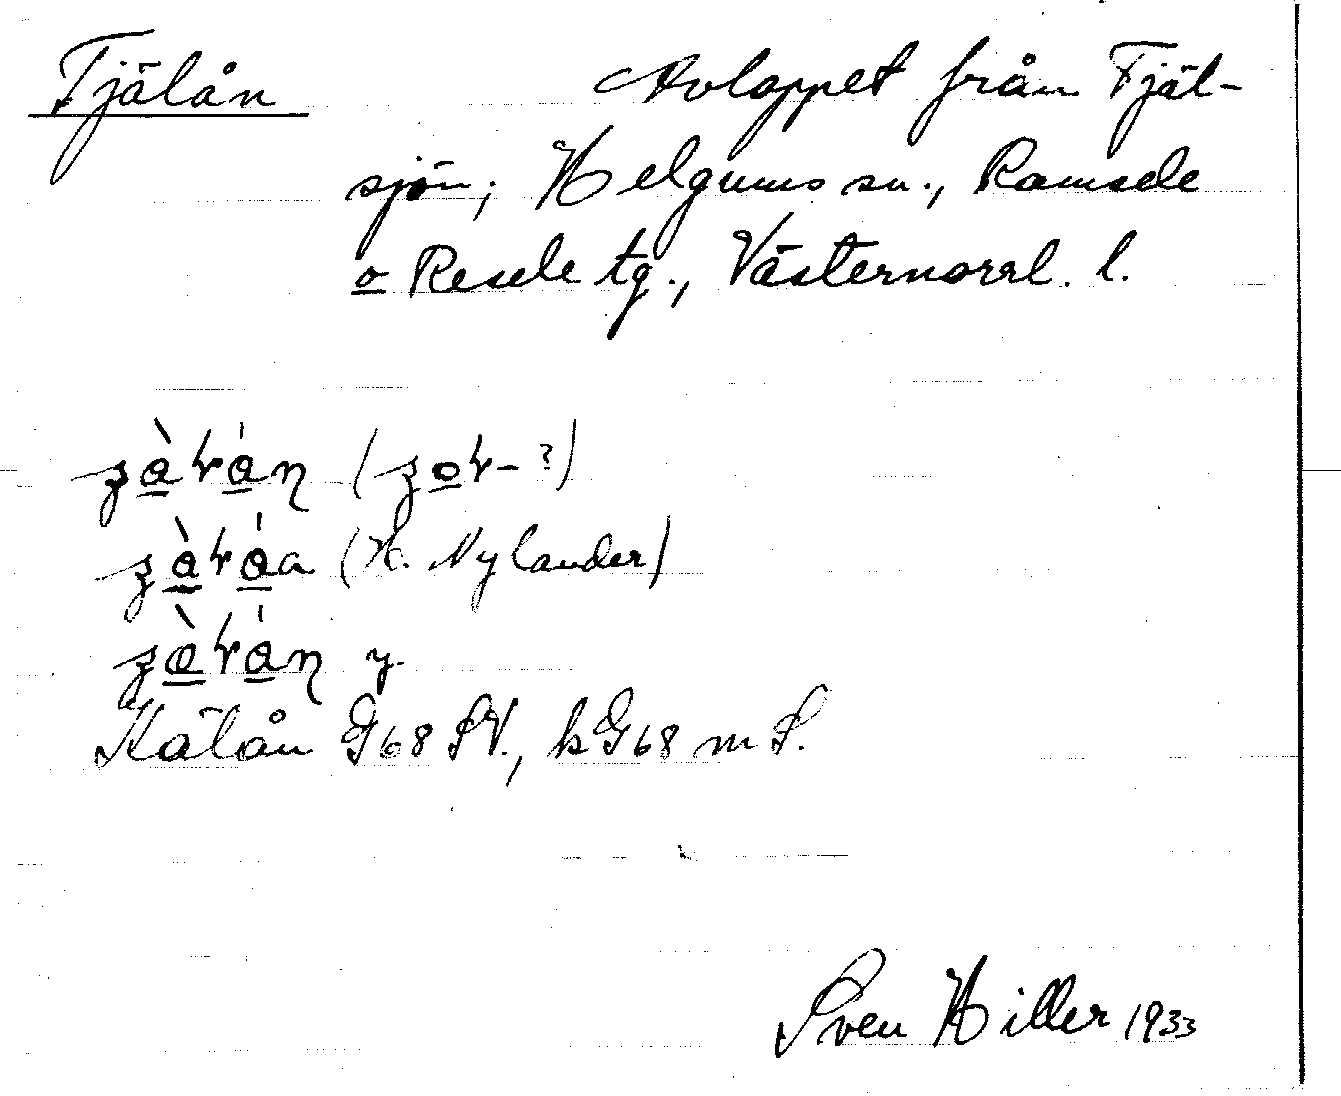 Tjälån Avloppet från Tjäl-
sjön; Helgums sn., Ramsele
o Resele tg., Västernorrl. l.
(H. Nylander)
y.
Kälån G68 SV., kG68 m S.
Sven Hiller 1933